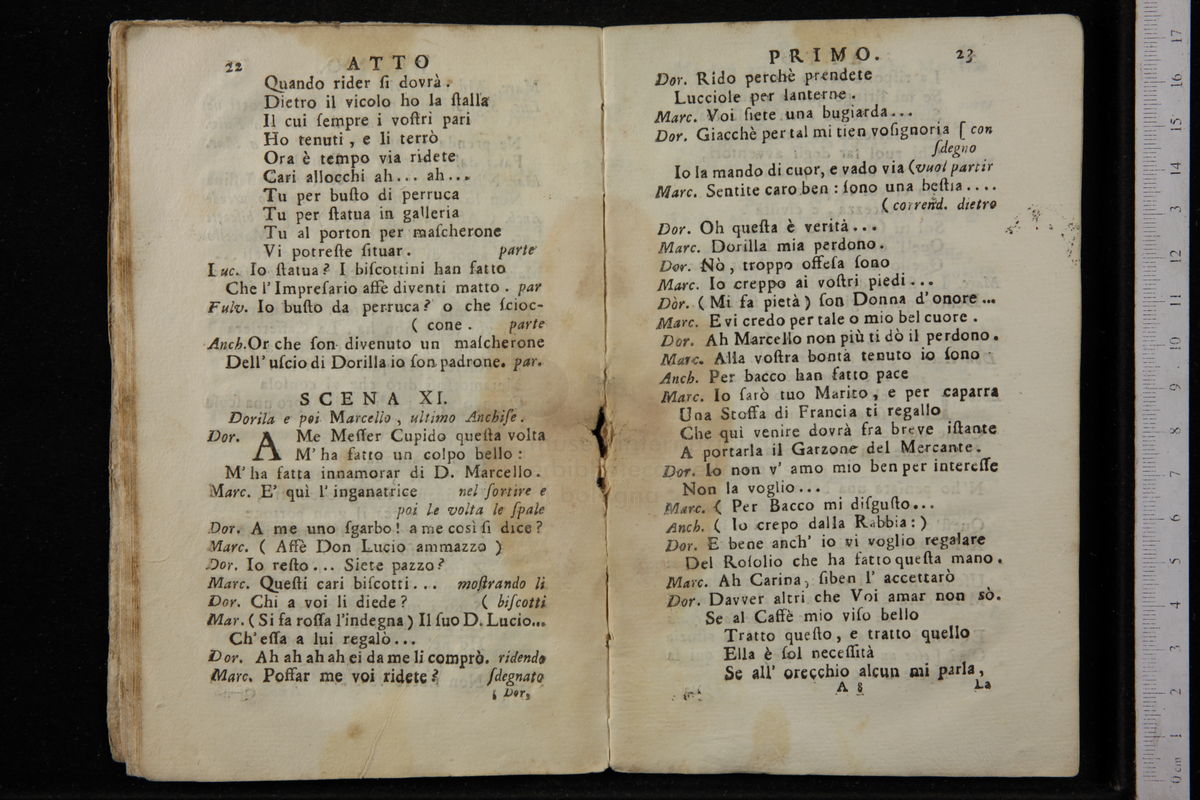 22 ATTO
Quando rider ſi dovrà.
Dietro il vicolo ho la ſtalla
Il cui ſempre i voſtri pari
Ho tenuti, e li terrò
Ora è tempo via ridete
Cari allocchi ah... ah...
Tu per buſto di perruca
Tu per ſtatua in galleria
Tu al porton per maſcherone
Vi potreſte ſituar. parte
Luc. Io ſtatua? I biſcottini han fatto
Che l'Impreſario affè diventi matto. par
Fulv. Io buſto da perruca? o che ſcioc-
( cone. parte
Anch. Or che ſon divenuto un maſcherone
Dell' uſcio di Dorilla io ſon padrone. par.
SCENA XI.
Dorila e poi Marcello, ultimo Anchiſe.
Dor. A Me Meſſer Cupido queſta volta
M' ha fatto un colpo bello:
M' ha fatta innamorar di D. Marcello.
Marc. E' quì l' inganatrice nel ſortire e
poi le volta le ſpale
Dor. A me uno ſgarbo! a me così ſi dice?
Marc. ( Affè Don Lucio ammazzo )
Dor. Io reſto... Siete pazzo?
Marc. Queſti cari biſcotti... moſtrando li
Dor. Chi a voi li diede? ( biſcotti
Mar. ( Si fa roſſa l'indegna ) Il ſuo D. Lucio...
Ch' eſſa a lui regalò...
Dor. Ah ah ah ah ei da me li comprò. ridendo
Marc. Poſſar me voi ridete? ſdegnato
Dor.
PRIMO. 23
Dor. Rido perchè prendete
Lucciole per lanterne.
Marc. Voi ſiete una bugiarda...
Dor. Giacchè per tal mi tien voſignoria [ con
ſdegno
Io la mando di cuor, e vado via (vuol partir
Marc. Sentite caro ben: ſono una beſtia....
( corrend. dietro
Dor. Oh queſta è verità...
Marc. Dorilla mia perdono.
Dor. Nò, troppo offeſa ſono
Marc. Io creppo ai voſtri piedi...
Dòr. ( Mi fa pietà ) ſon Donna d'onore...
Marc. E vi credo per tale o mio bel cuore.
Dor. Ah Marcello non più ti dò il perdono.
Marc. Alla voſtra bontà tenuto io ſono
Anch. Per bacco han fatto pace
Marc. Io ſarò tuo Marito, e per caparra
Una Stoffa di Francia ti regallo
Che quì venire dovrà fra breve iſtante
A portarla il Garzone del Mercante.
Dor. Io non v' amo mio ben per intereſſe
Non la voglio...
Marc. ( Per Bacco mi diſguſto...
Anch. ( Io crepo dalla Rabbia: )
Dor. E bene anch' io vi voglio regalare
Del Roſolio che ha fatto queſta mano.
Marc. Ah Carina, ſiben l' accettarò
Dor. Davver altri che Voi amar non sò.
Se al Caffè mio viſo bello
Tratto queſto, e tratto quello
Ella è ſol neceſſità
Se all' orecchio alcun mi parla,
A 5 La